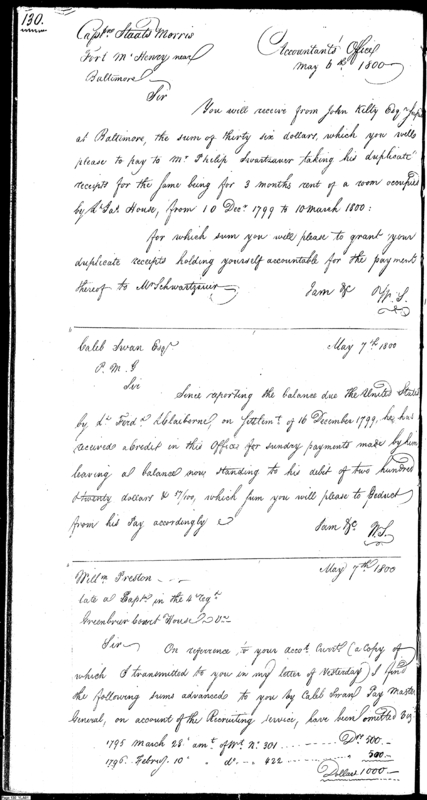 130.
Capt.ne Staats Morris
Accountants' Office
Fort Mc Henry near
May 6th 1800
Baltimore
Sir
You will receive from John Kilty Esqr
at Baltimore, the sum of thirty six dollars, which you will
please to pay to Mr Philip Swartzauer taking his duplicate
receipts for the same being for 3 months rent of a room occupied
by Lt Jas. House, from 10 Decr 1799 to 10 March 1800:
for which sum you will please to grant your
duplicate receipts holding yourself accountable for the payment
thereof to Mr Schwartzauer
I am &c W. S.
Caleb Swan Esqr
May 7th 1800
P. M. G
Sir
Since reporting the balance due the United States
by Lt Ferd. L. Claiborne, on settlemt of 16 December 1799, he has
received a credit in this Office for sunday payments make by him
leaving a balance now standing to his debit of two hundred
& twenty dollars & /100, which sum you will please to deduct
from his Pay accordingly
I am &c. W. S.
Willm Preston
May 7th 1800
late a Captn in the 4th Regt
Greenbrier Court House Va
Sir
On reference to your acct. Currt (a Copy of
which I transmitted to you in my letter of Yesterday) I find
the following sums advanced to you by Caleb Swan Pay Master
General, on account of the Recruiting service, have been omitted Viz
1795 March 28 amt of Wt No. 301 Drs 500
1796. Febrey 10 " do 422 500
Dollars 1000